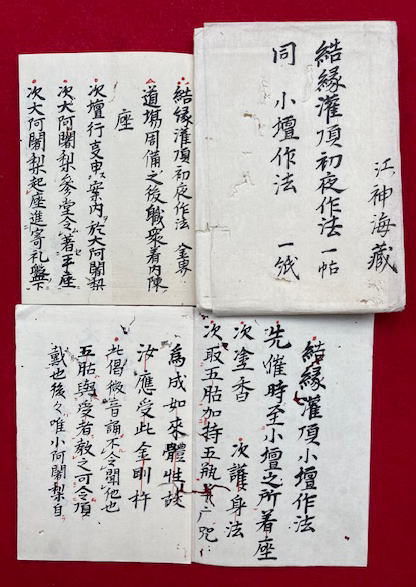 結緣灌頂初夜作法 一帖
同 小壇作法 一紙
江神海藏
結緣灌頂初夜作法
道場周備之後職衆着内陳
座
次壇行支申案内於大阿闍梨
次大阿闍梨参堂令着平座
次大阿闍梨起座進寄礼盤下
結緣灌頂小壇作法
先催時至小壇之所着座
次塗香 次護身法
次取五股加持五瓶
為成如來體性
汝應受此金剛杵
此偈微音誦不令聞他也
五股與受者教之可令頂
戴也後々唯小阿闍梨自